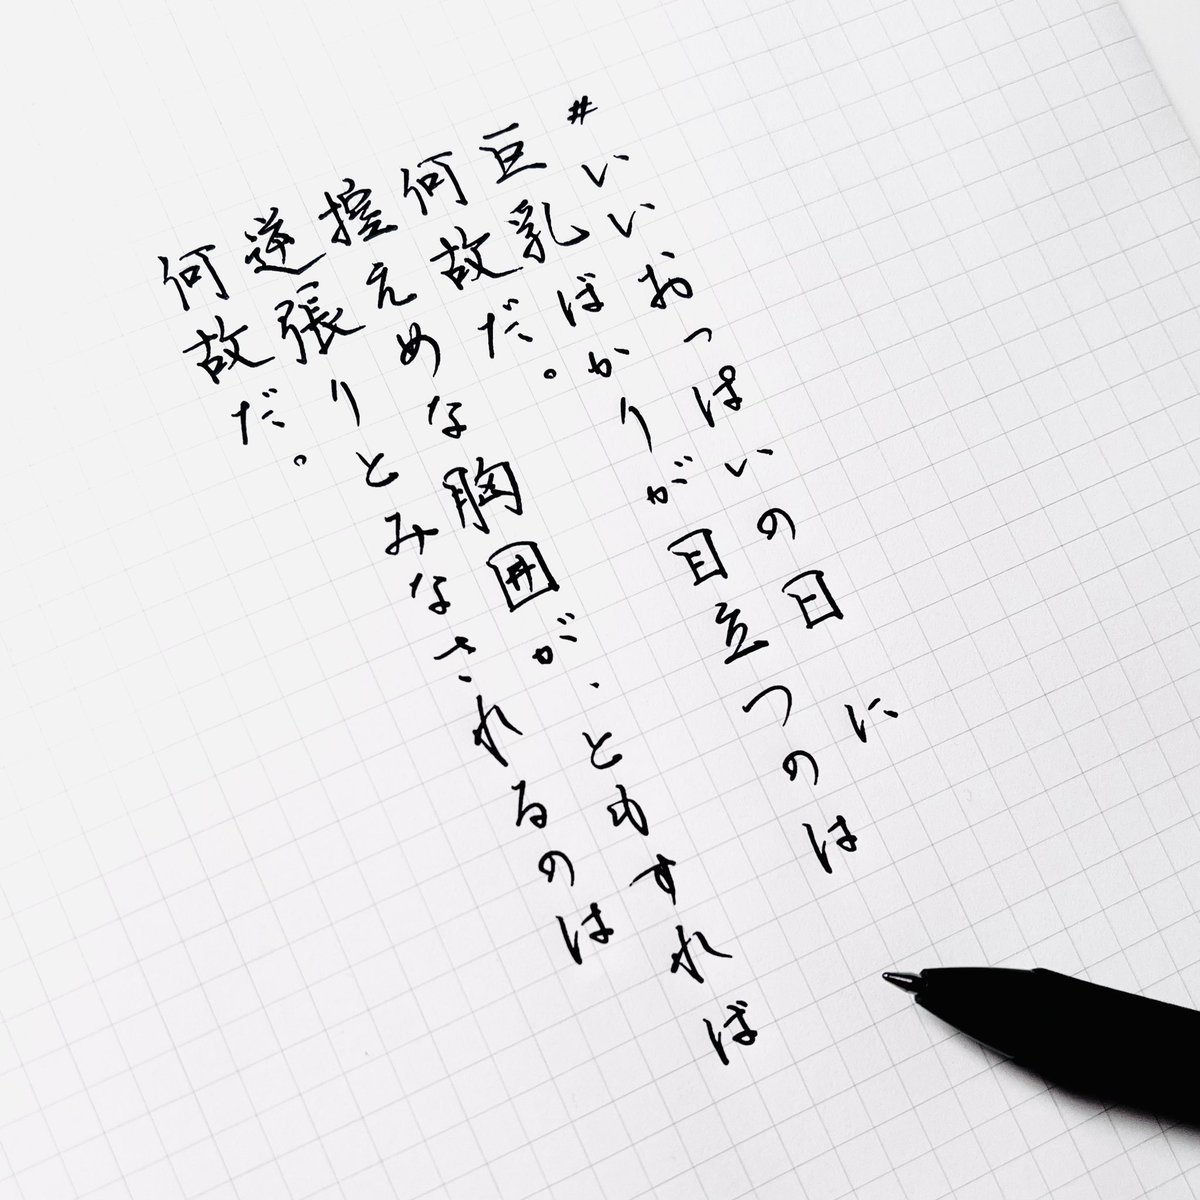 #いいおっぱいの日に
巨乳ばかりが目立つのは
何故だ。
控えめな胸囲が、ともすれば
逆張りとみなされるのは
何故だ。